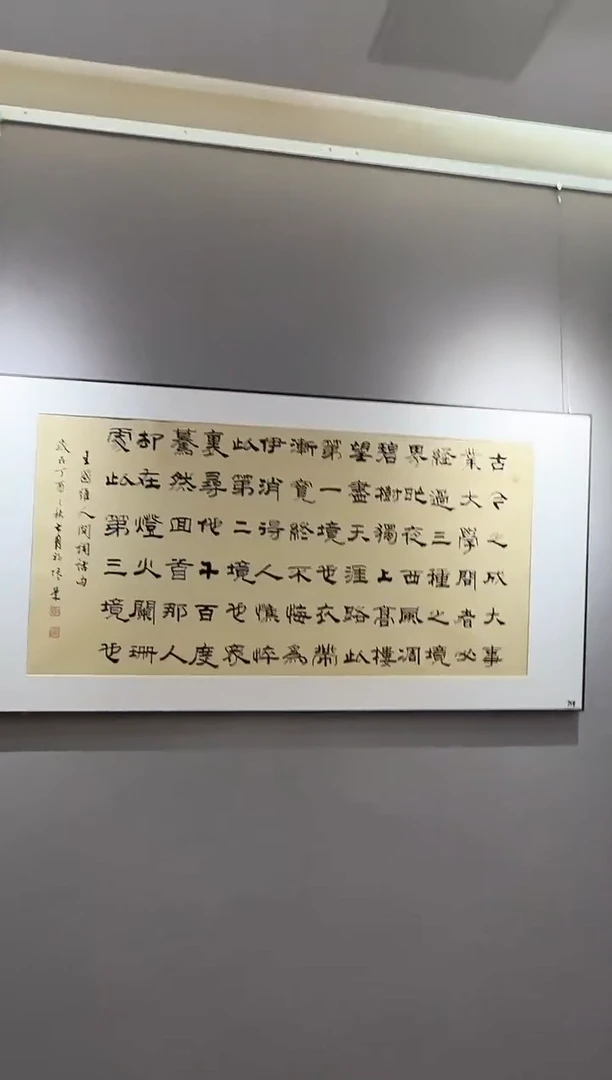 古今之成大事
業大學問者必
經過三種之境
界昨夜西風凋
碧樹獨上髙樓
望盡天涯路此
第一境也衣帶
漸寬終不悔為
伊消得人憔悴
此第二境也衆
裏尋他千百度
驀然回首那人
却在燈火闌珊
處此第三境也
王國維人間詞話句
歲在丁酉之秋七月初